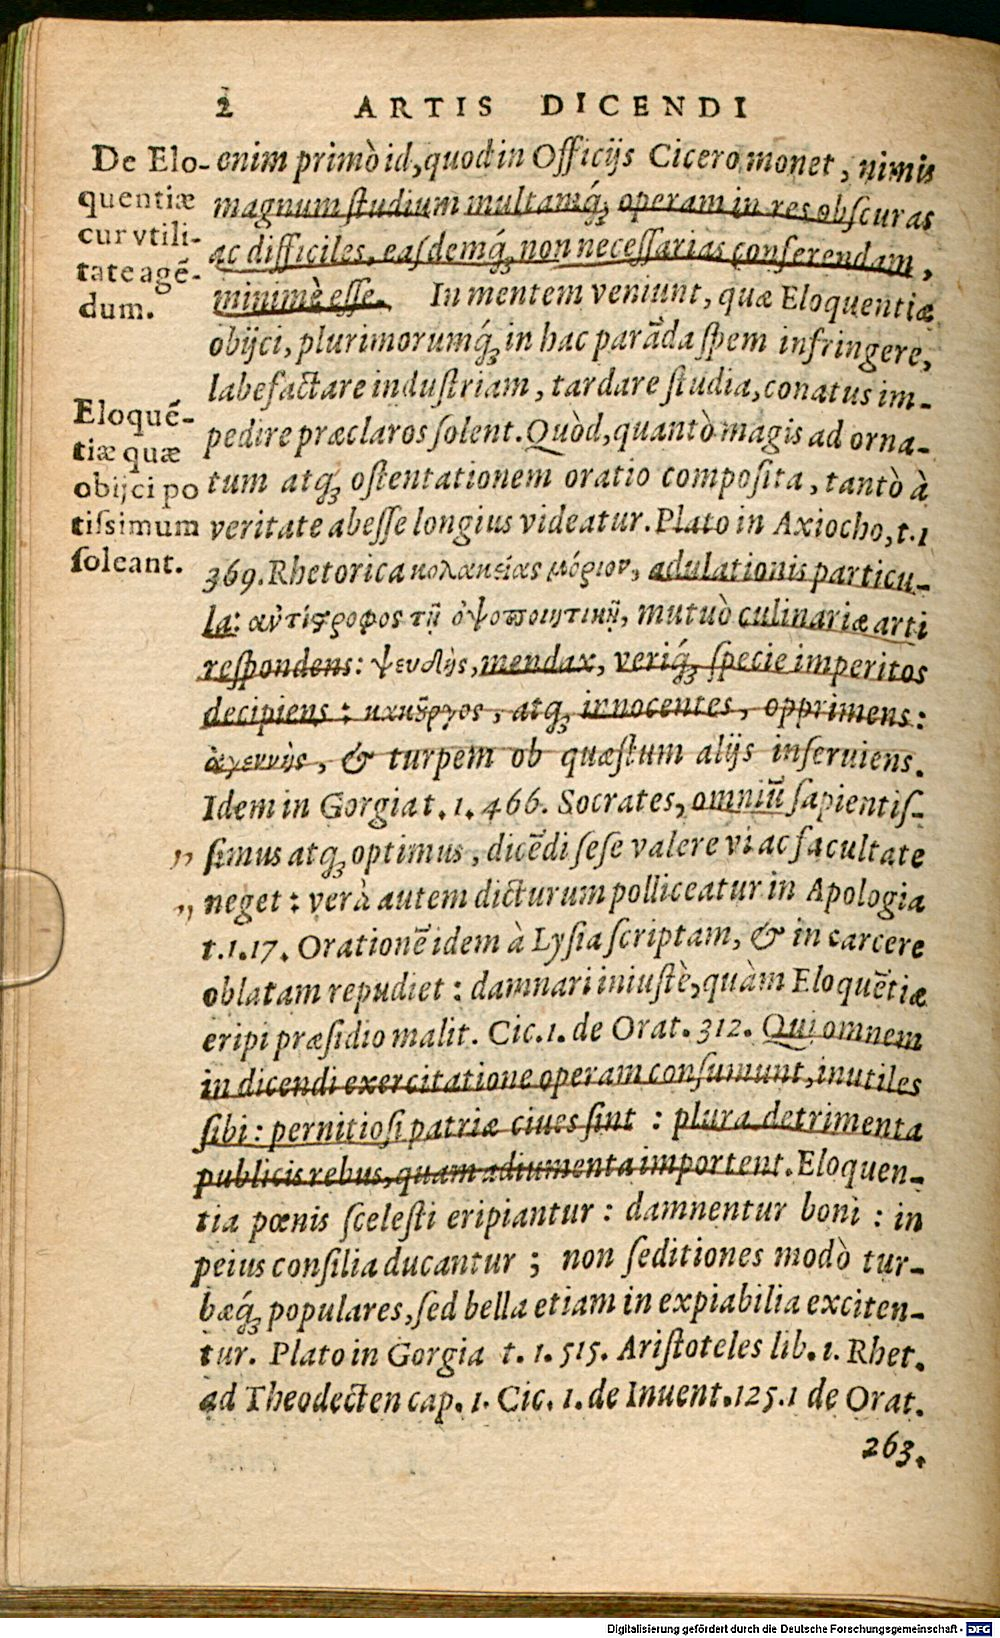 2 ARTIS DICENDI
De Elo-
quentiæ
cur vtili-
tate agē-
dum.
Eloquē-
tiæ quæ
obijci po
tissimum
soleant.
enim primò id, quod in Officijs Cicero monet, nimis
magnum studium multamq́; operam in res obscuras
ac difficiles, easdemq́; non necessarias conserendam,
minimè esse. In mentem veniunt, quæ Eloquentiæ
obijci, plurimorumq́; in hac parāda spem infringere,
labefactare industriam, tardare studia, conatus im-
pedire præclaros solent. Quòd, quantò magis ad orna-
tum atq; ostentationem oratio composita, tantò à
veritate abesse longius videatur. Plato in Axiocho, t.1
369. Rhetorica κολακείας μόριον, adulationis particu-
la: αντίςροφος τῇ ὀψοποιητικῇ, mutuò culinariæ arti
respondens: ψευδὴς, mendax, veriq́; specie imperitos
decipiens: κακῦργος, atq; innocentes, opprimens:
ἀγεννὴς, & turpem ob quæstum alijs inseruiens.
Idem in Gorgia t. 1. 466. Socrates, omniū sapientis-
„ simus atq; optimus, dicēdi sese valere vi ac facultate
„ neget: verà autem dicturum polliceatur in Apologia
t. 1. 17. Orationē idem à Lysia scriptam, & in carcere
oblatam repudiet: damnari iniustè, quàm Eloquētiæ
eripi præsidio malit. Cic. 1. de Orat. 312. Qui omnem
in dicendi exercitatione operam consumunt, inutiles
sibi: pernitiosi patriæ ciues sint: plura detrimenta
publicis rebus, quam adiumenta importent. Eloquen-
tia pœnis scelesti eripiantur: damnentur boni: in
peius consilia ducantur; non seditiones modò tur-
bæq́; populares, sed bella etiam in expiabilia exciten-
tur. Plato in Gorgia t. 1. 515. Aristoteles lib. 1. Rhet.
ad Theodecten cap. 1. Cic. 1. de Inuent. 125. 1 de Orat.
263.
Digitalisierung gefördert durch die Deutsche Forschungsgemeinschaft - DFG